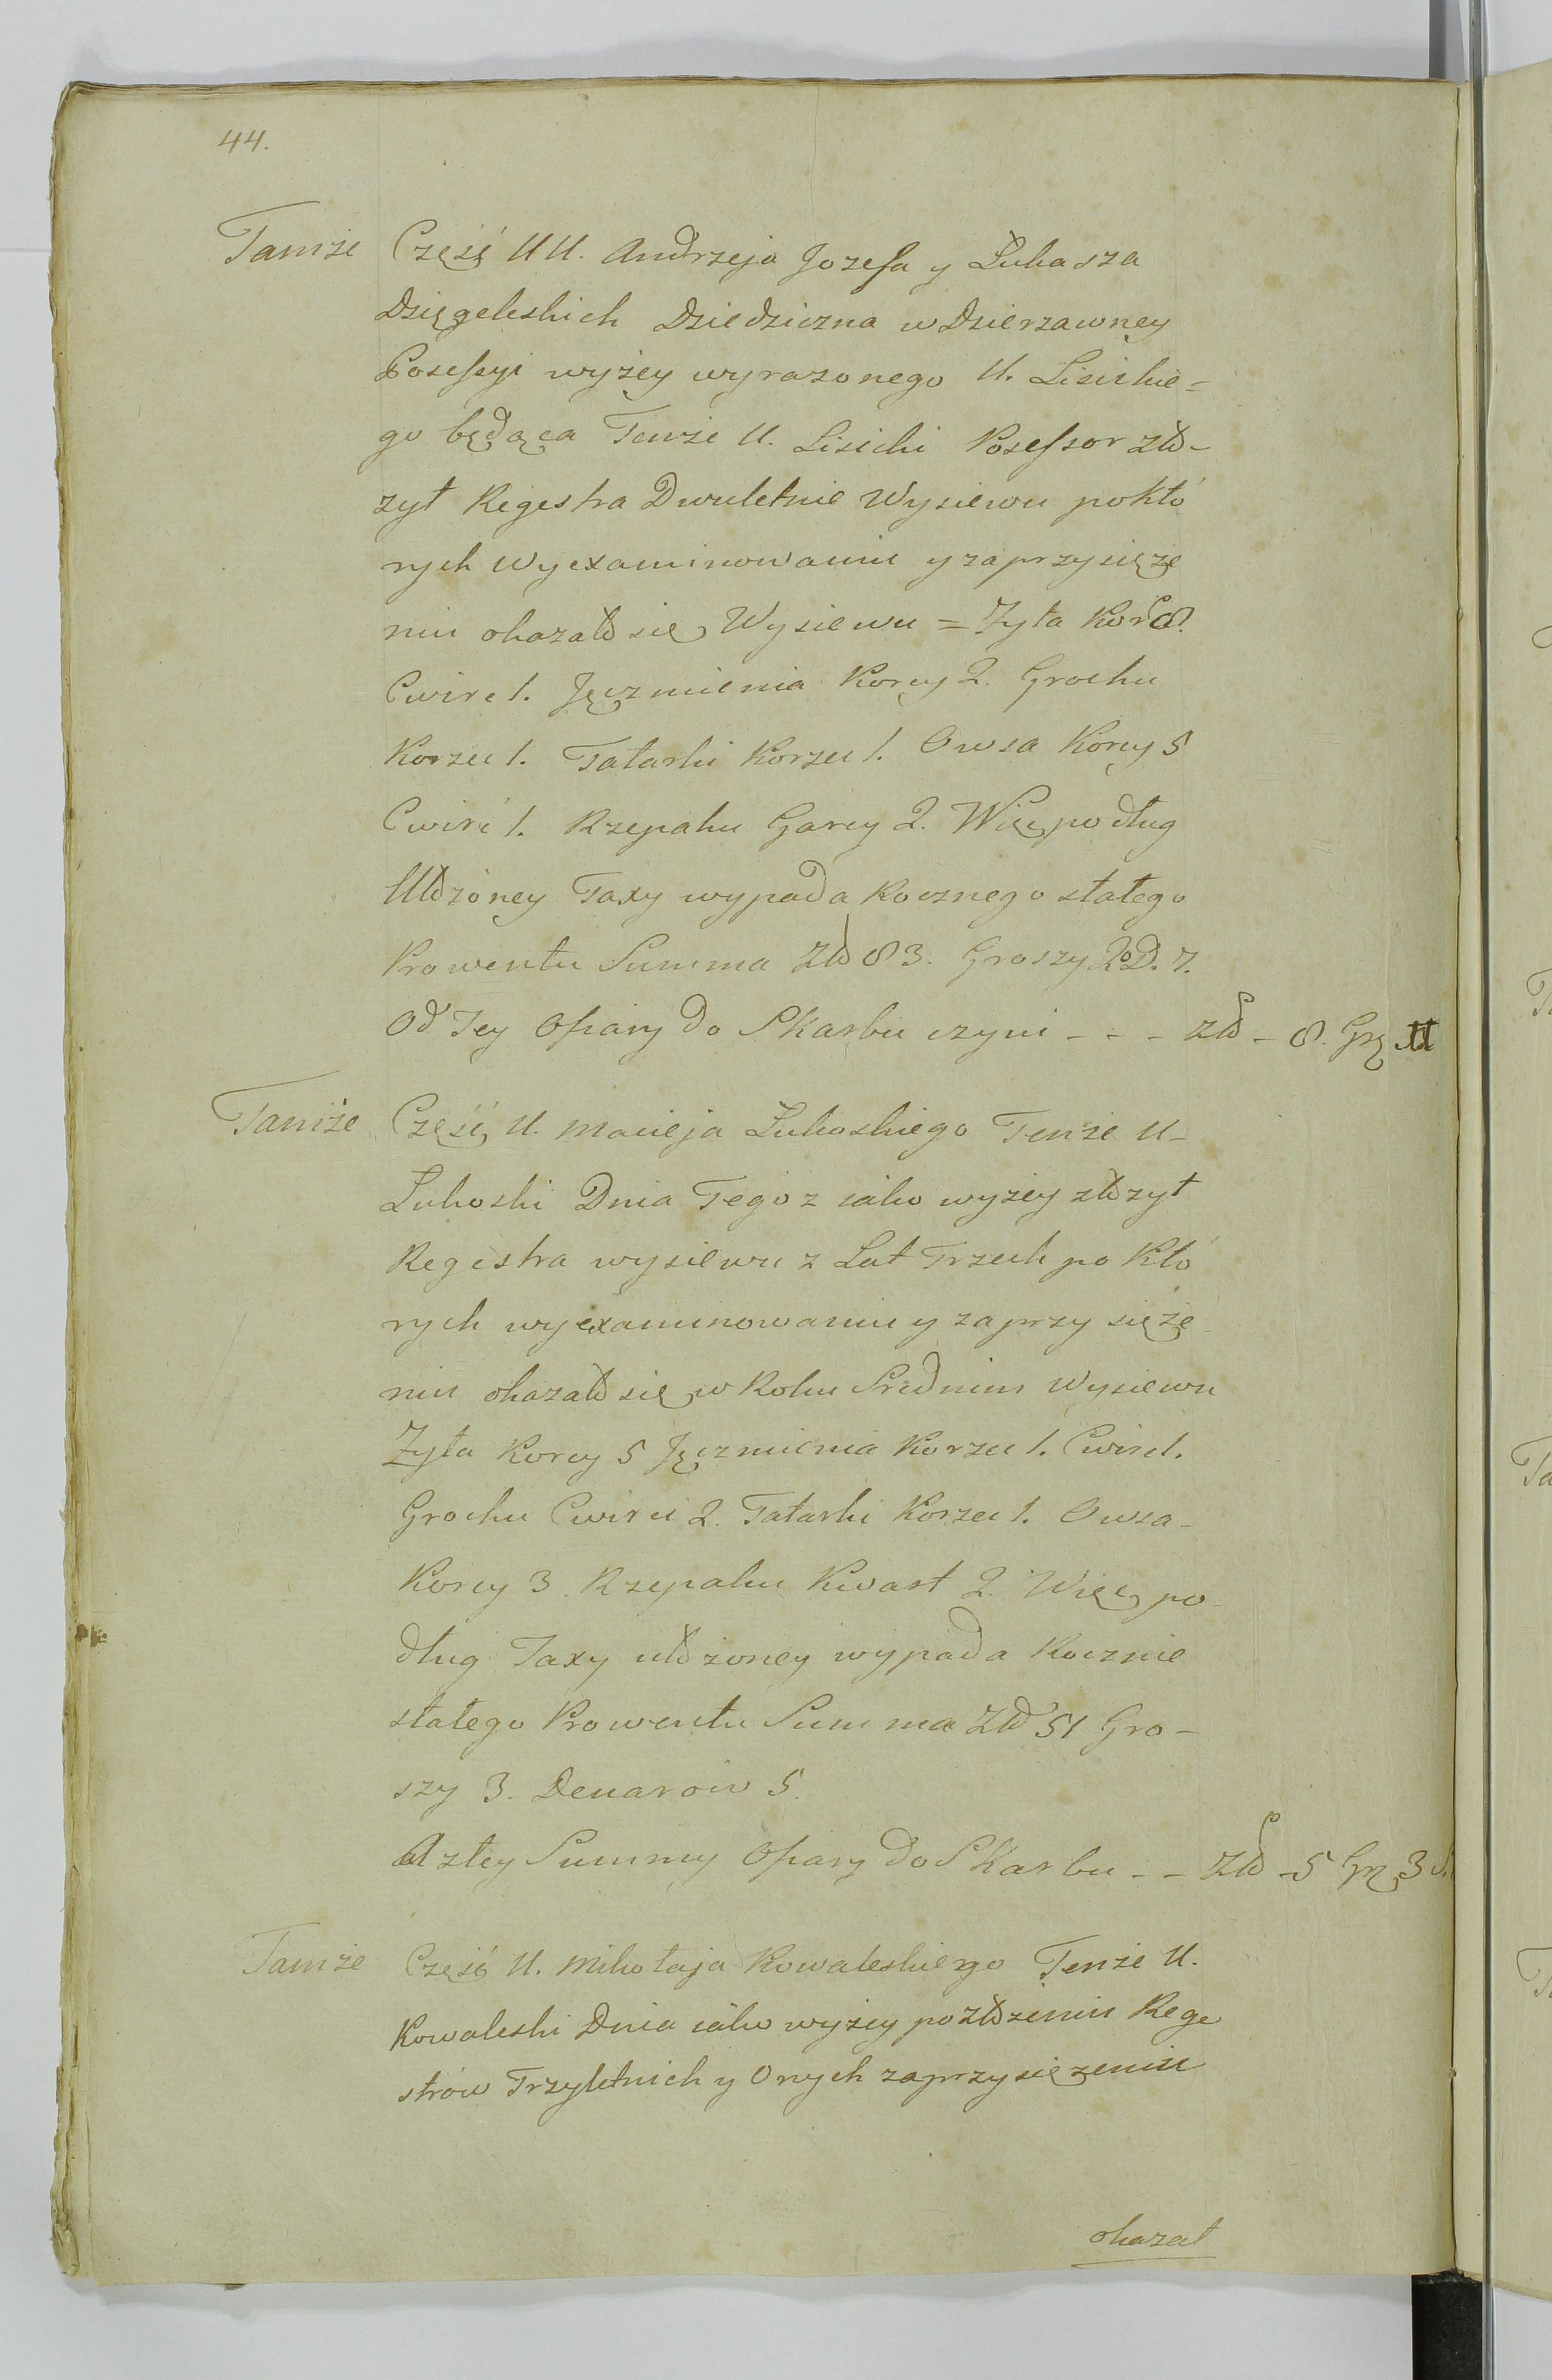 44.
Tamże Część UU. Andrzeja Jozefa y Łukasza
Dzięgeleskich Dziedziczna w Dzierzawney
Posessyi wyżey wyrazonego U. Lisickie-
go będąca Tenże U. Lisicki Posessor zło-
zył Regestra Dwuletnie Wysiewu po któ
rych wyexaminowaniu y zaprzysięże
niu okazało się Wysiewu = Zyta Korcy 8.
Cwierć 1. Jęczmienia Korcy 2. Grochu
Korzec 1. Tatarki Korzec 1. Owsa Korcy 5
Cwierć 1. Rzepaku Garcy 2. Więc podług
Ułożoney Taxy wypada Rocznego stałego
Prowentu Summa Zło 83. Groszy 20 D. 7.
Od Tey Ofiary do Skarbu czyni - - - zło - 8. Grz 11
Tamże Część U. Macieja Łukoskiego Tenże U-
Łukoski Dnia Tegoz iako wyżey złożył
Regestra wysiewu z Lat Trzech po któ
rych wyexaminowaniu y zaprzysięże
niu okazało się w Roku Srednim Wysiewu
Zyta Korcy 5 Jęczmienia Korzec 1. Cwierć 1.
Grochu Cwierci 2. Tatarki Korzec 1. Owsa-
Korcy 3. Rzepaku Kwart 2. Więc po-
dług Taxy ułożoney wypada Rocznie
stałego Prowentu Summa Zło 51 Gro-
szy 3. Denarow 5.
A z tey Summy Ofiary do Skarbu - - Zło - 5 Grz 3
Tamże Część U. Mikołaja Kowaleskiego Tenże U.
Kowaleski Dnia iako wyżey po złożeniu Rege
strow Trzyletnich y Onych zaprzysiężeniu
okazał